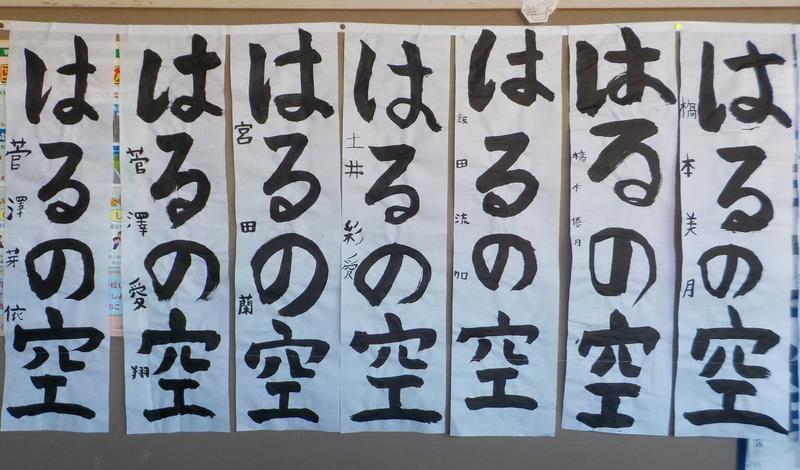 はるの空
橋本美月
はるの空
橋本優月
はるの空
飯田流加
はるの空
土井彩愛
はるの空
宮田蘭
はるの空
菅澤愛翔
はるの空
菅澤芽依